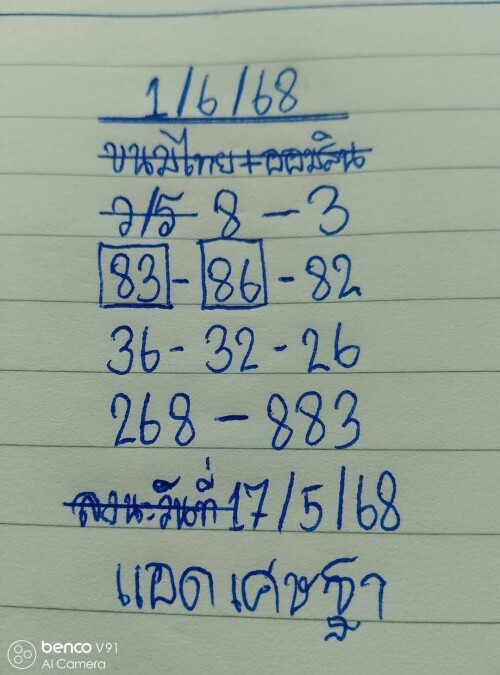 1/6/68
ขนมไทย+ออมสิน
ว/ร 8-3
83-86-82
36-32-26
268-883
ลงนะวันที่ 17/5/68
แอดเศษฐา
benco V91
AI Camera